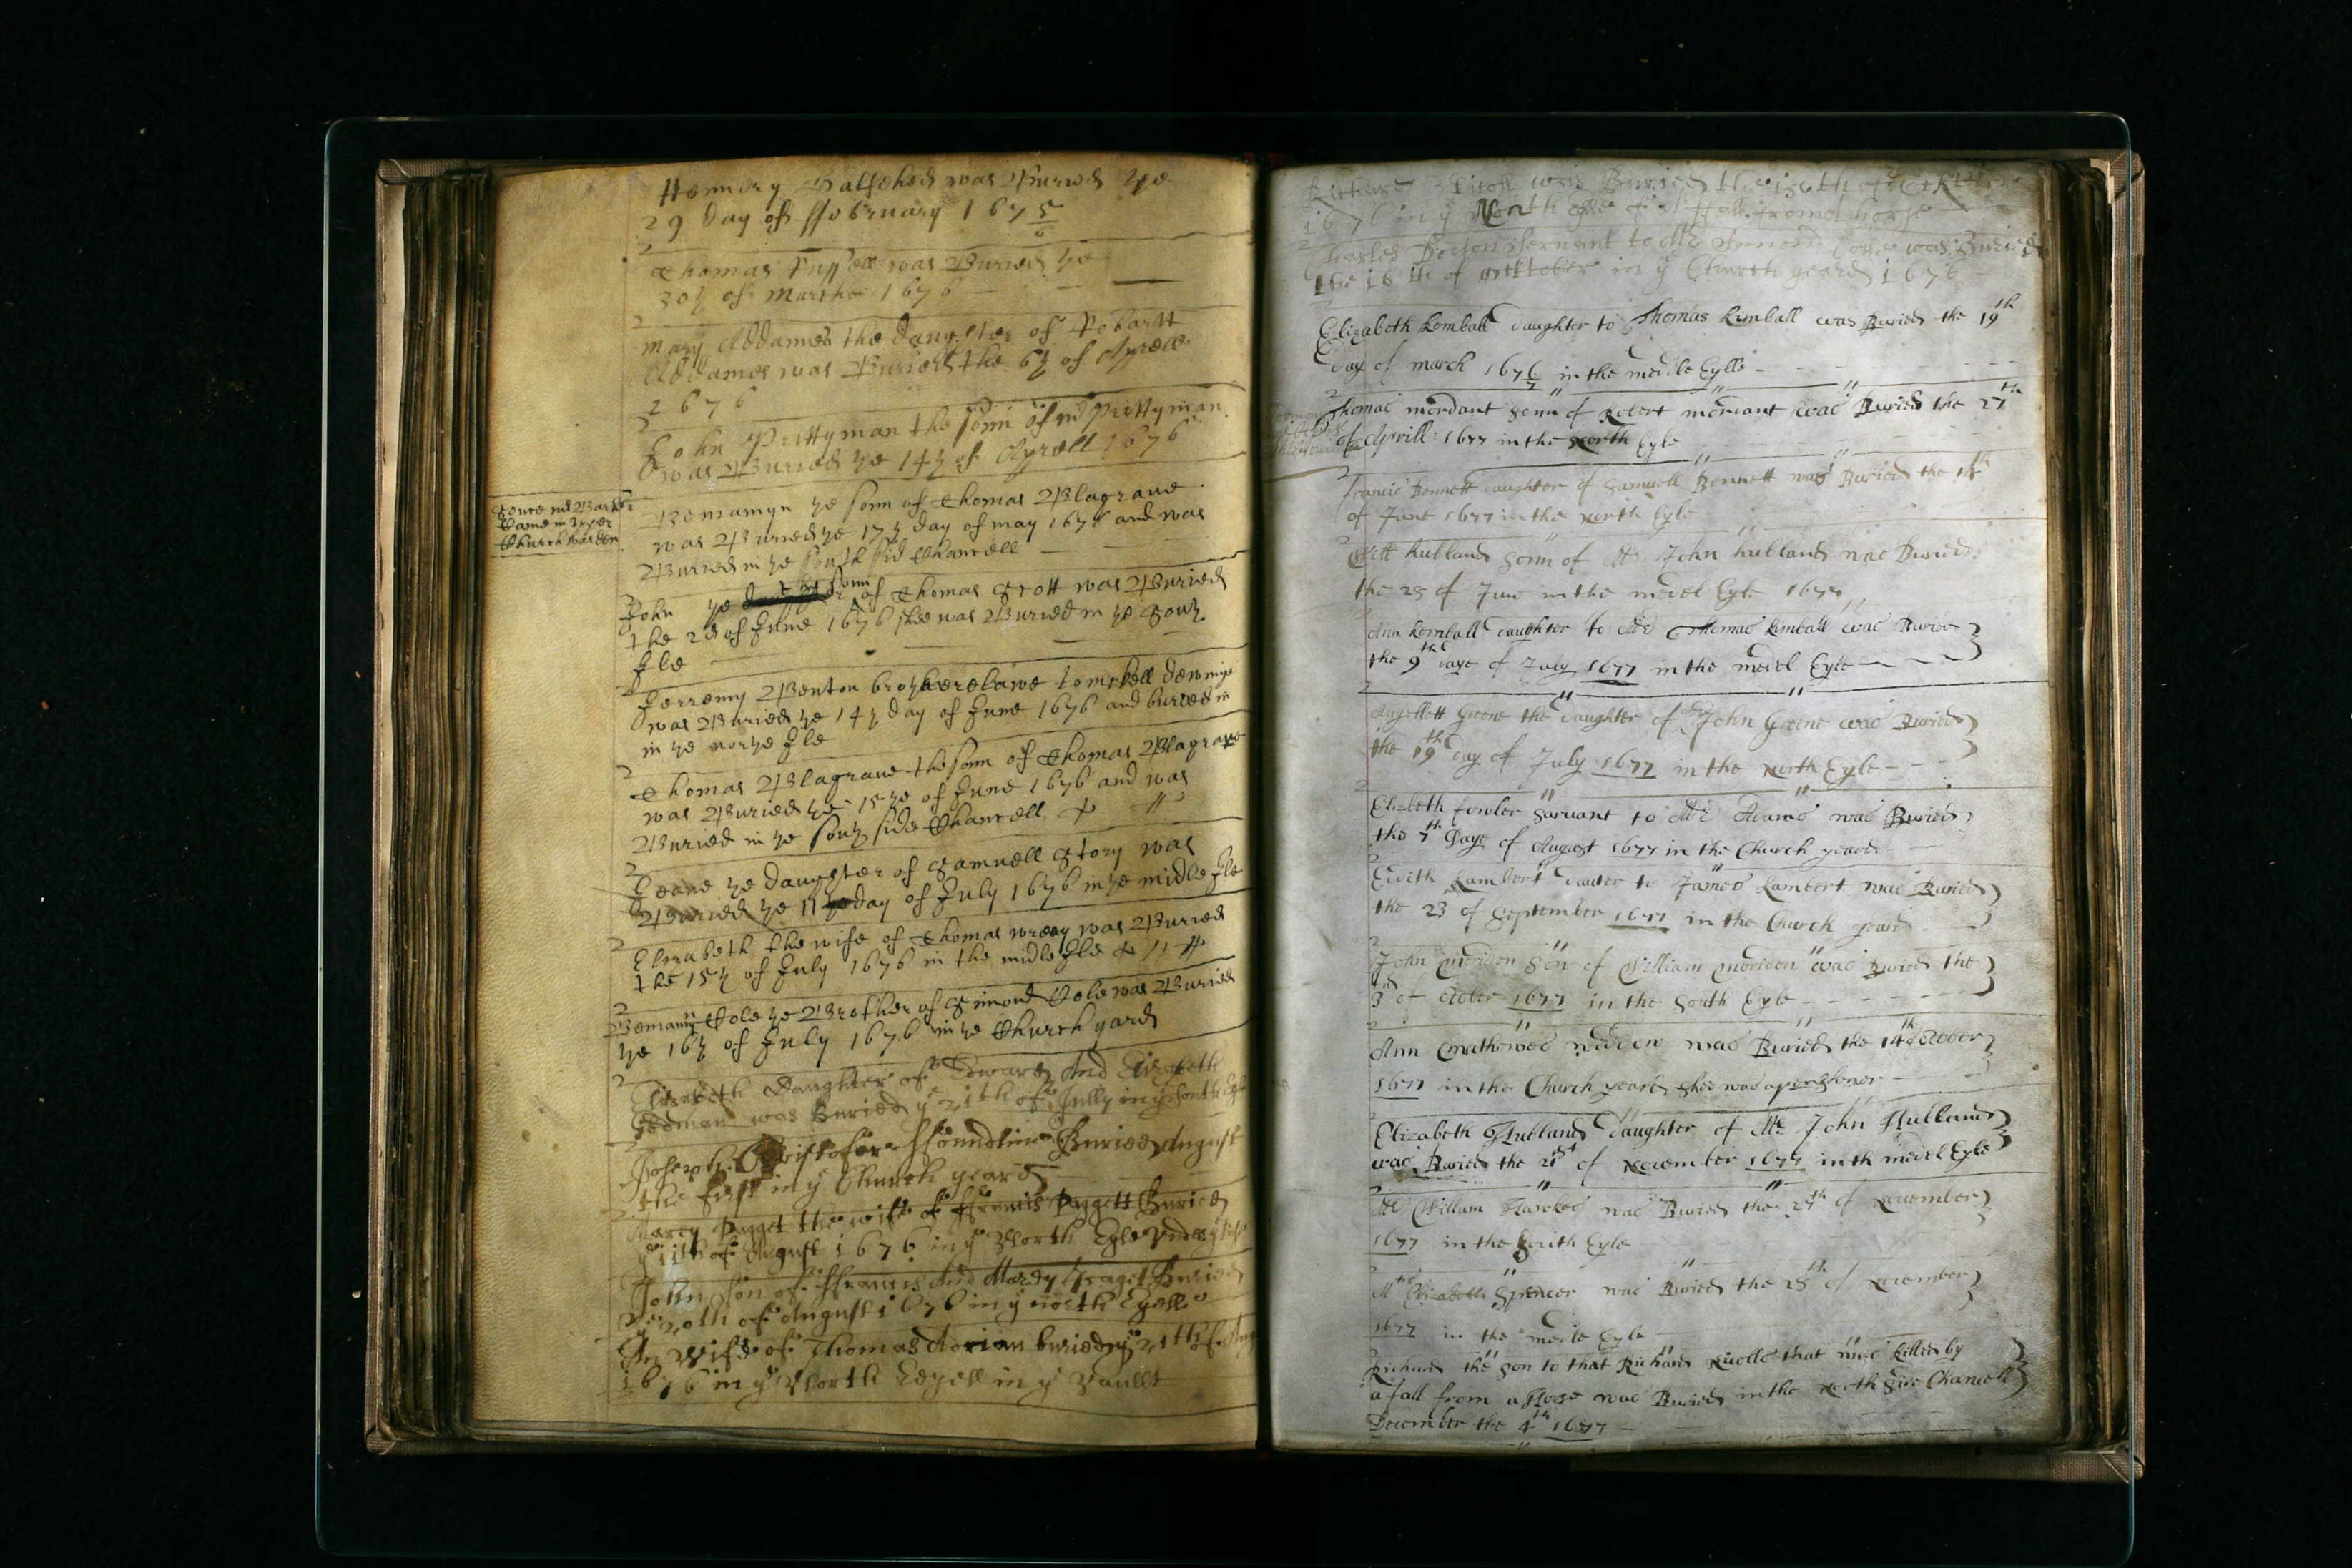 Hennery was Buried ye
29 day of ffebruary 1675
6
Thomas was Buried ye
30th of Marthe 1676
2
Mary Addames the daughter of Robartt
Addames was Buried the 6th of Aprell
1676
2
John Prittyman the sonn of mr Prittyman
was Buried ye 14th of Aprell 1676
Sence mr Barker
Came in Vper
Church warden
Beniamyn ye sonn of Thomas Blagraue
was Buried ye 17th day of may 1676 and was
Buried in ye south sid Chancell
2
the sonn
John ye of Thomas Scott was Buried
the 2d of June 1676 shee was Buried in ye South
Ile
2
Jerremy Benton brotherelawe to
was Buried ye 14th day of June 1676 and buried in
in ye northe Ile
2
Thomas Blagraue the sonn of Thomas Blagraue
was Buried ye 15th of June 1676 and was
Buried in ye south side Chancell
2
Jeane ye daughter of Samuell Story was
Buried ye 11 day of July 1676 in ye midle Ile
2
Elizabeth the wife of Thomas was Buried
the 15th of July 1676 in the midle Ile
2
Cole ye Brother of Simond Cole was Buried
ye 16th of July 1676 in ye Church yard
2
Elizabeth Daughter of Edward And Elizabeth
was Buried ye 21th of Jully in ye South
2
Joseph Christofer ffoundline Buried August
the first in ye Church yeard
2
Marcy Pagget the wife of ffrancis Paggett Buried
ye 11th of August 1676 in ye North Eyle
John son of ffrancis And Marcy Buried
ye 20th of August 1676 in ye north Eyell
wife of Thomas buried ye 21th of
1676 in ye North Eyell in ye Vaullt
Richard was Buried the
1676 in ye North of A fall from a horse
2
Charles servant to Mr Simond Cole was Buried
the 16th of Ocktober in ye Church yeard 1676
2
Elizabeth Kemball daughter to Thomas Kimball was Buried the 19th
day of march 1676 in the medle Eylle
7
2
Thomas mordant sonn of Robert mordant was Buried the 27th
of Aprill 1677 in the North Eyle
2
Francis Bennett daughter of Samuell Bennett was Buried the
of June 1677 in the North Eyle
2
Hubland sonn of Mr John Hubland was Buried
the 28 of June in the medel Eyle 1677
2
Ann Kemball daughter to Mr Thomas Kimball was Buried
the 9th daye of July 1677 in the medel Eyle
2
Angellett Greene the daughter of John Greene was Buried
the 19th day of July 1677 in the North Eyle
2
Elizbeth fowler Saruant to Mr Adams was Buried
the 7th Daye of August 1677 in the Church yeard
2
Edith Lambert dauter to James Lambert was Buried
the 23 of September 1677 in the Church yeard
2
John meriden Son of William meriden was Buried the
3d of October 1677 in the South Eyle
2
Ann mathewes widdow was Buried the 14th October
1677 in the Church yeard shee was a penshoner
2
Elizabeth Hubland daughter of Mr John Hubland
was Buried the 21st of November 1677 in th medel Eyle
2
Mr Willam Hawkes was Buried the 27th of November
1677 in the South Eyle
2
Mrs Elizabeth Spencer was Buried the 28th of November
1677 in the medle Eyle
Richard the Son to that Richard Nicolls that was killed by
a fall from a Horse was Buried in the North side Chancell
December the 4th 1677